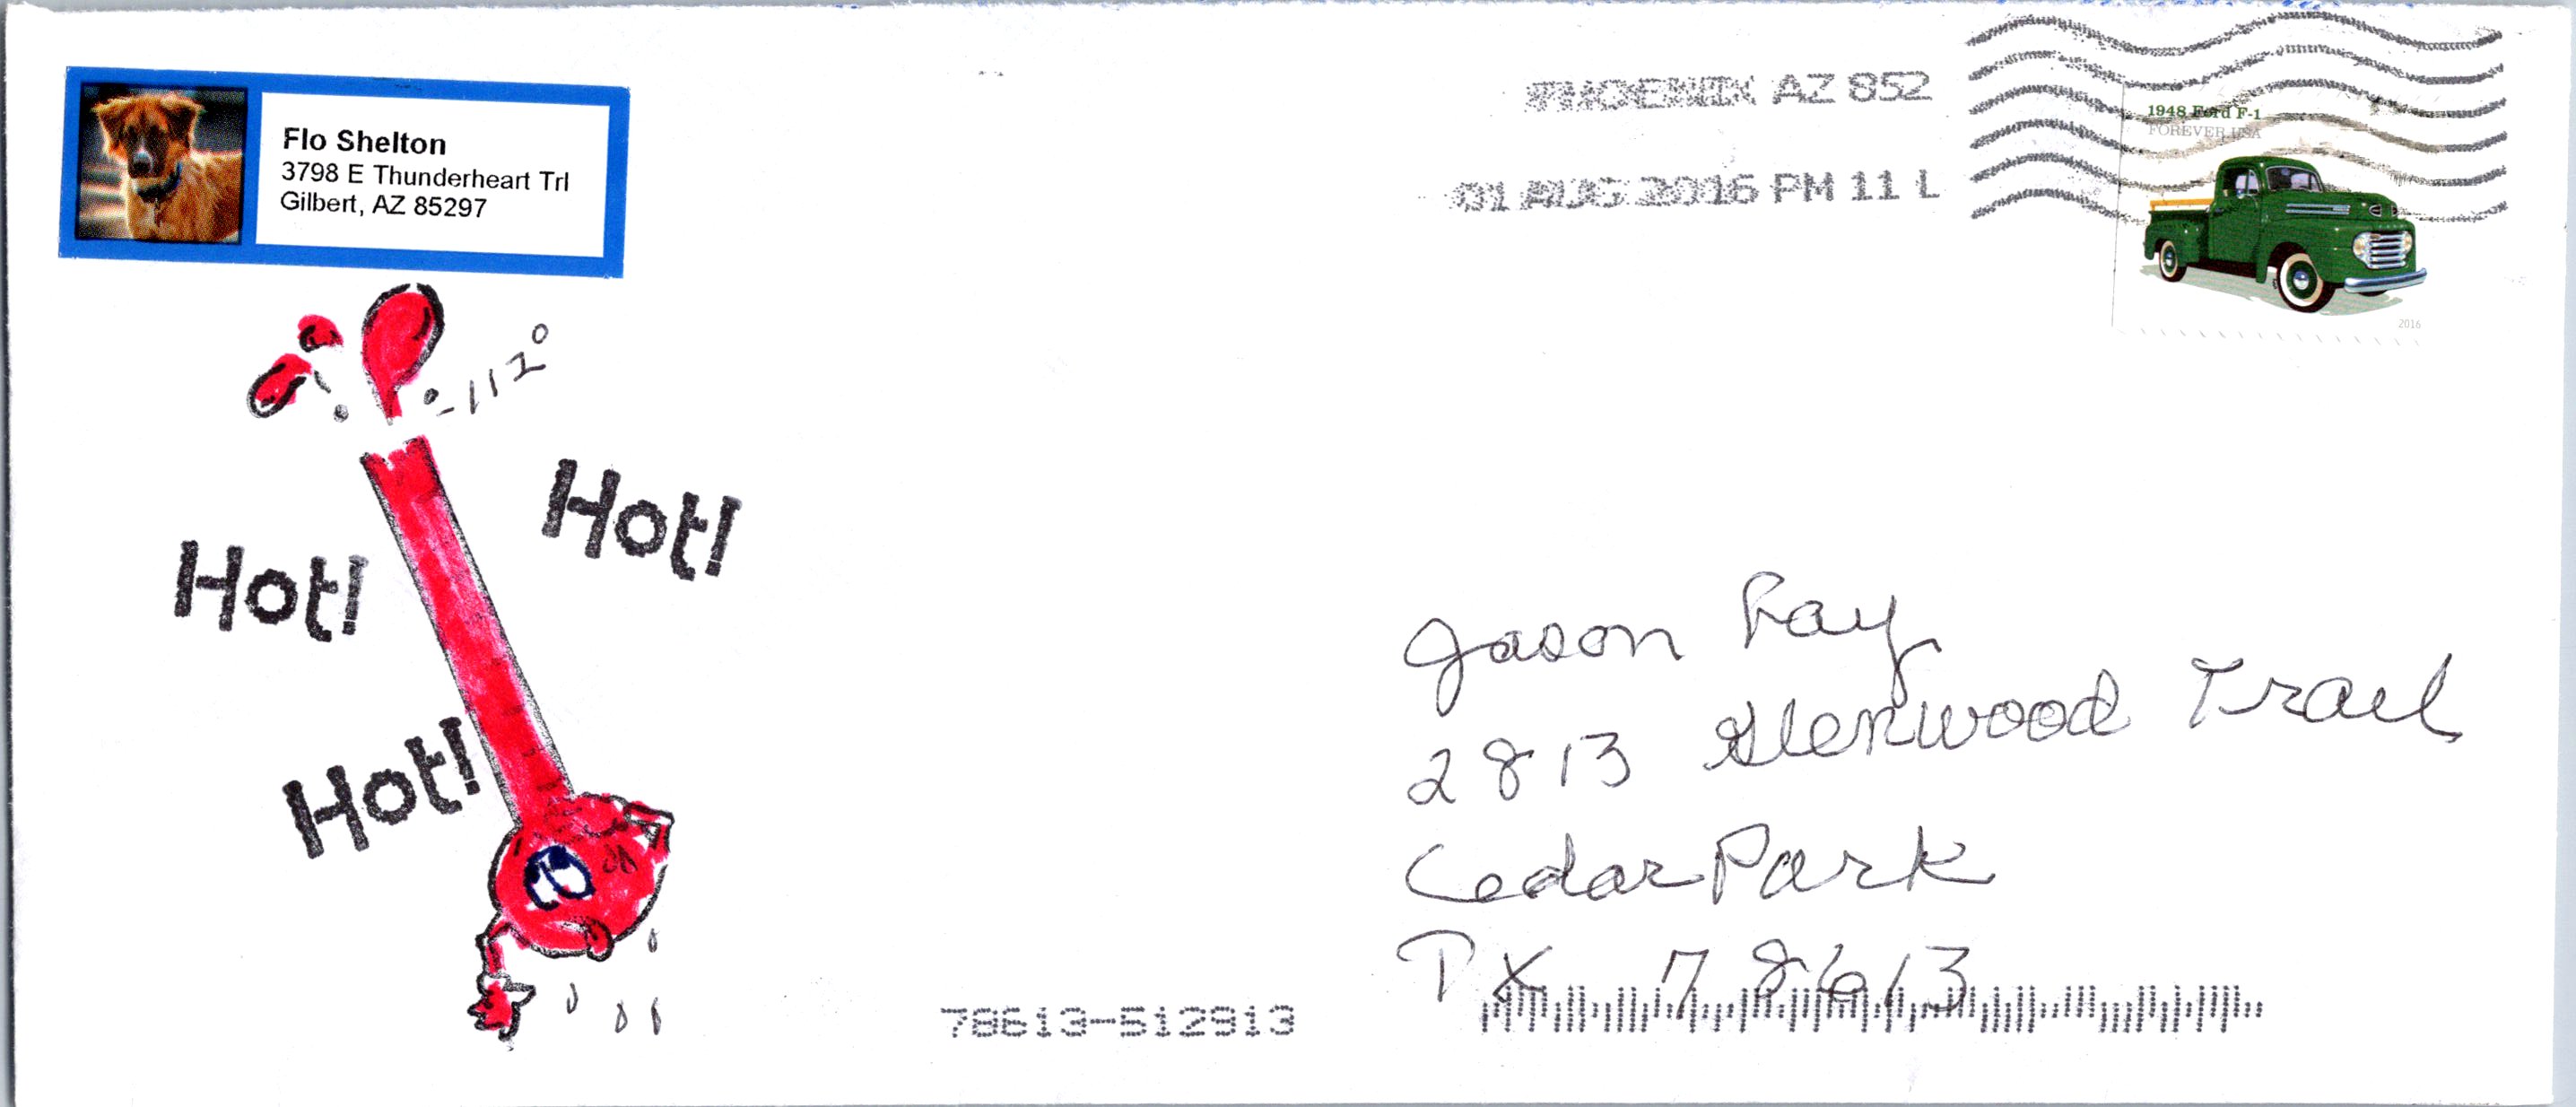 Flo Shelton
3798 E Thunderheart Trl
Gilbert, AZ 85297
PHOENIX AZ 852
01 AUG 2016 PM 11 L
1948 Ford F-1
FOREVER USA
2016
-112°
Hot!
Hot!
Hot!
Jason Fay
2813 Glenwood Trail
Cedar Park
TX 78613
78613-512913